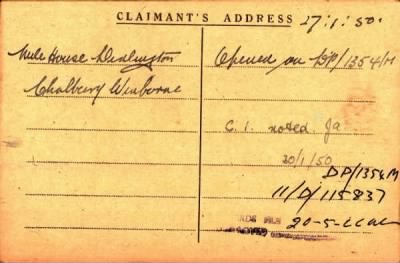 CLAIMANT'S ADDRESS 27.1.50.
House
Chalbury Wimborne
Opened on DP/1354/M
C. I. noted
20/1/50
DP/1354M
11/D/115837
20-5-